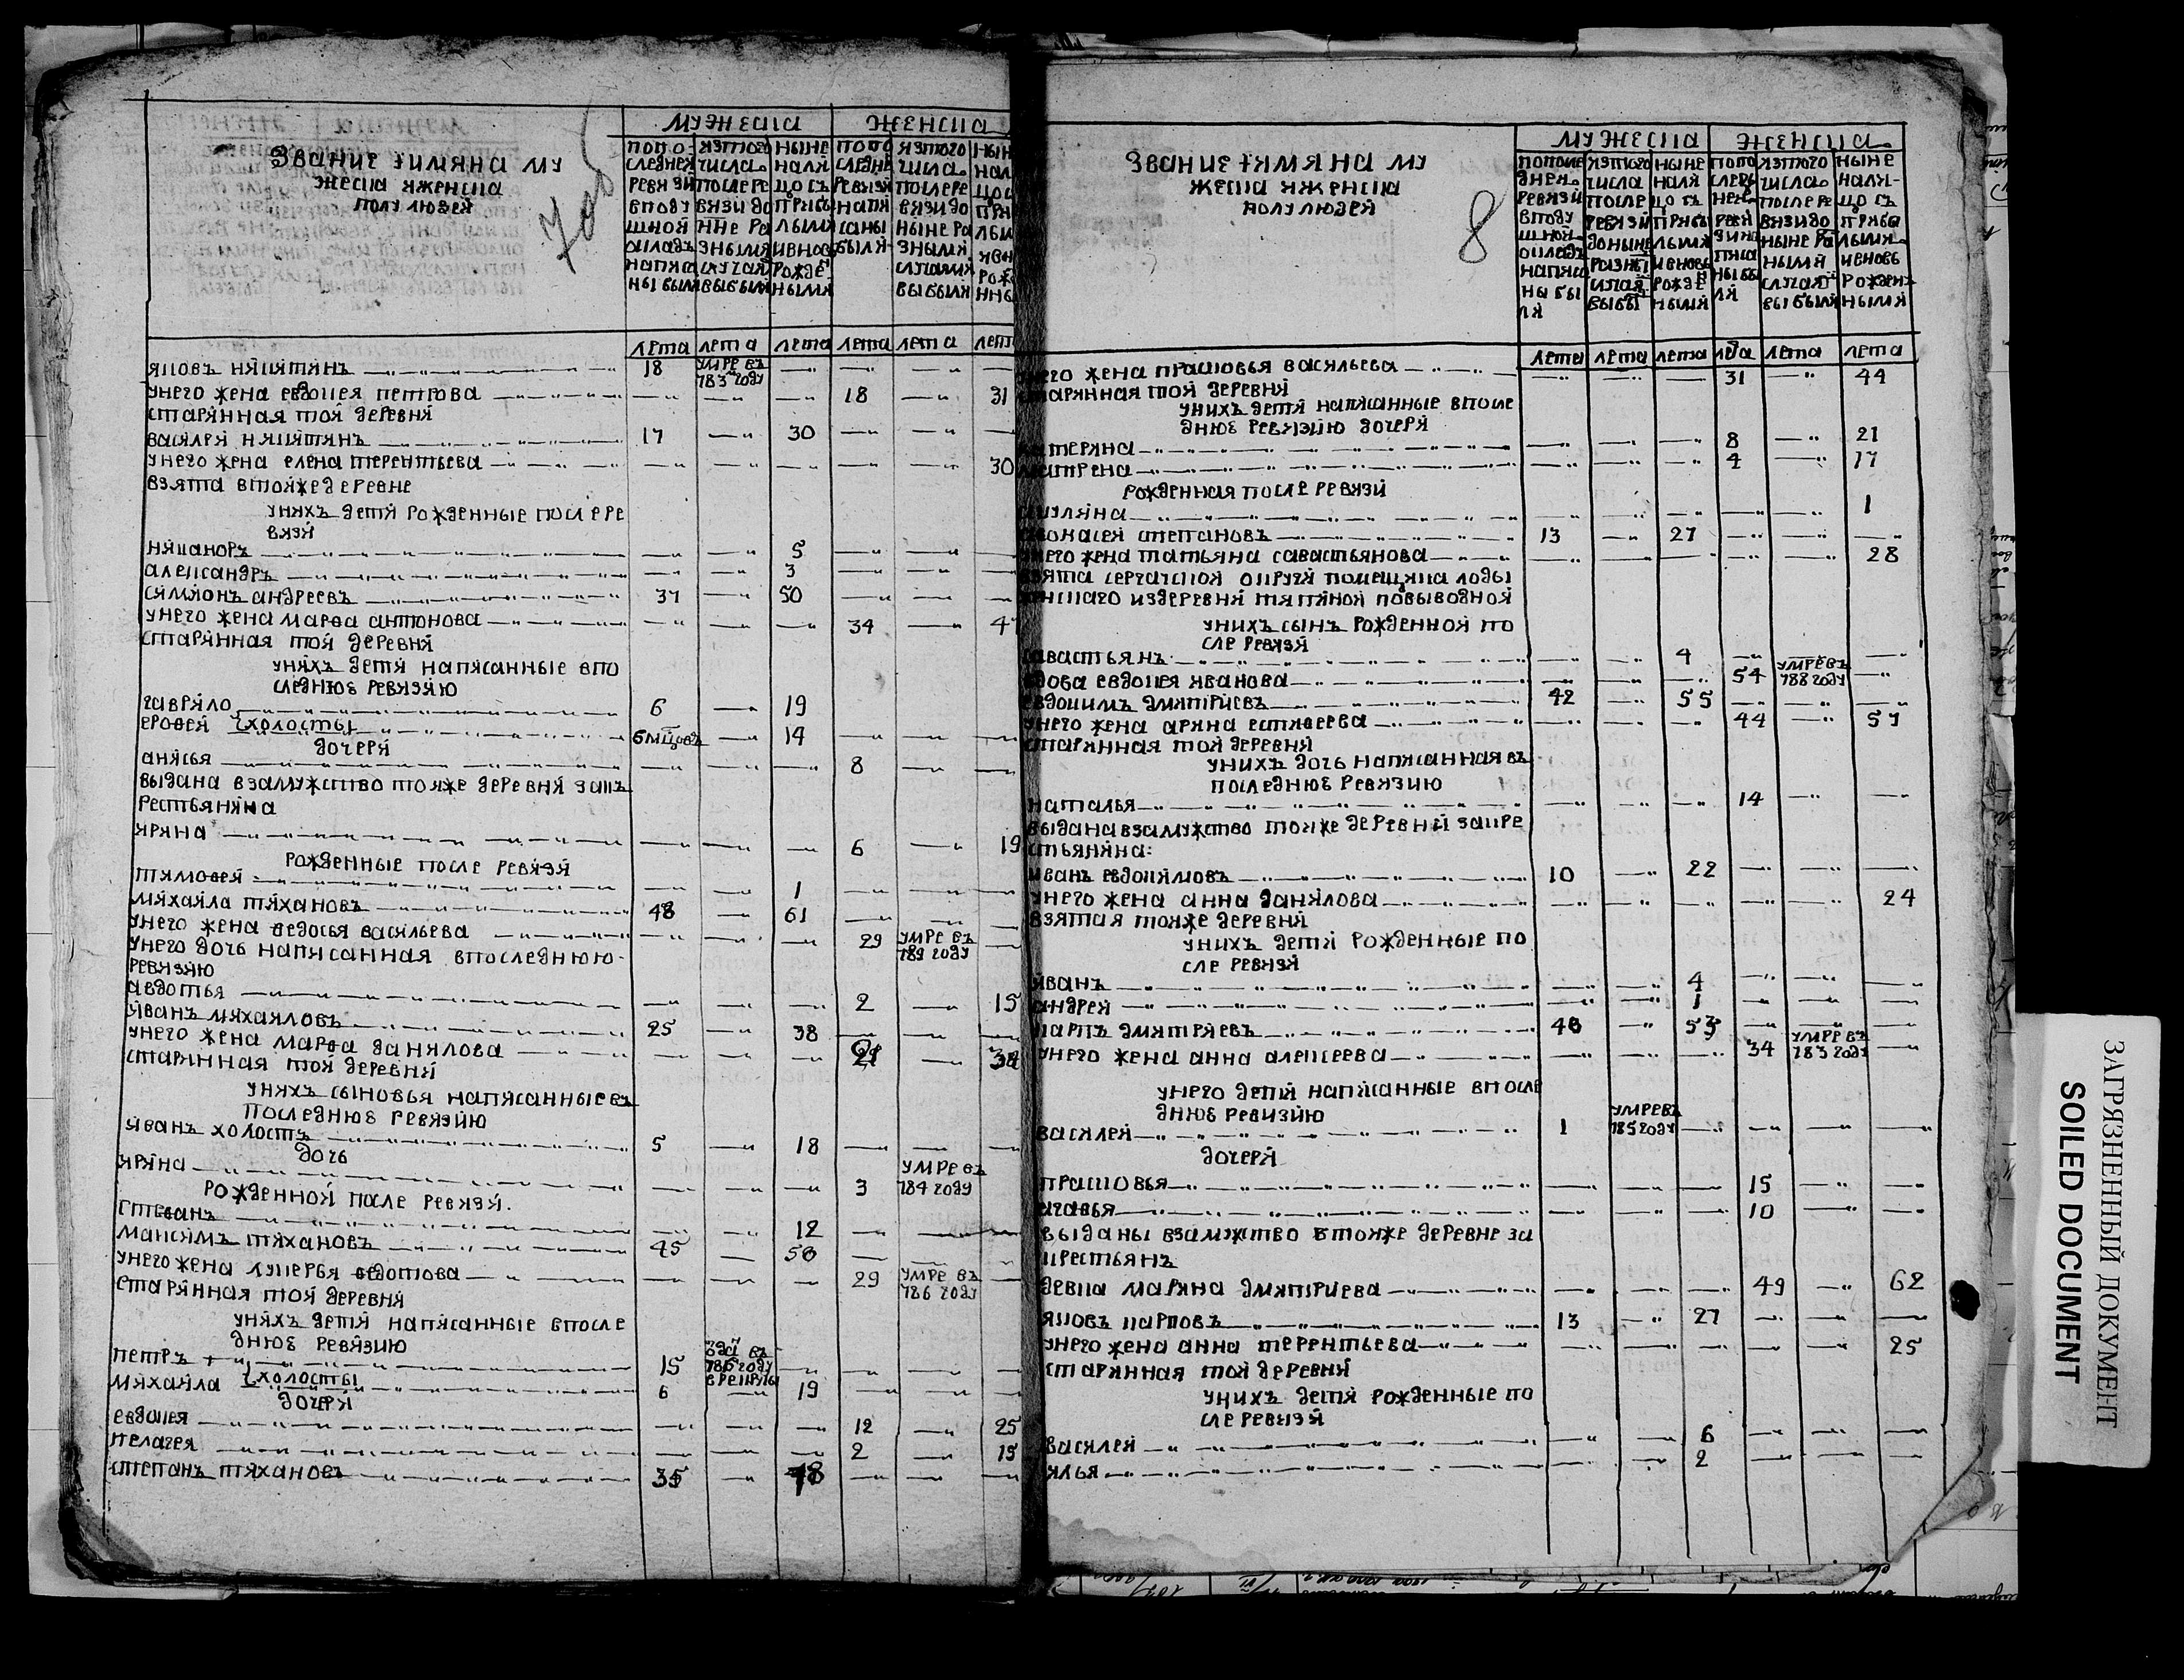 Звание і имяна му
жеска и женска
полу людей
мужеска
женска
по по
следней
ревизи
в поду
шной
окладъ
написа
ны были
из того
числа
после ре
визи до
ныне ра
зными
случаи
выбыли
ныне
нали
цо съ
прибы
лыми
и вновь
рожде
ными
по по
следне
ревизи
напи
саны
были
из того
числа
после ре
визи до
ныне ра
зными
случаими
выбыли
лета лета лета лета лета лета
яковъ никитинъ 18 умре въ 783 году
у него жена евдокея петрова 18 31
старинная той деревни
василей никитинъ 17 30
у него жена елена терентьева 30
взята в той же деревне
у нихъ дети рожденные после ре
визи
никаноръ 5
александръ 3
симионъ андреевъ 37 50
у него жена марѳа антонова 34 47
старинная той деревни
у нихъ дети написанные в по
следнюю ревизию
гаврило 6 19
ерофей } холосты 6 мцовъ 14
дочери
анисья 8
выдана в замужство той же деревни за къ
рестьянина
ирина 6 19
рожденные после ревизи
тимофей 1
михаила тихановъ 48 61
у него жена федосья васильева 29 умре въ 789 году
у него дочь написанная в последнюю
ревизию
авдотья 2 15
иванъ михаиловъ 25 38
у него жена марѳа данилова 38
старинная той деревни
у нихъ сыновья написанные въ
последнюю ревизию
иванъ холостъ 5 18
дочь
ирина 3 умре въ 784 году
рожденной после ревизи.
стефанъ 12
максимъ тихановъ 45 58
у него жена лукерья федотова 29 умре въ 786 году
старинная той деревни
у нихъ дети написанные в после
днюю ревизию
петръ 15 одсі въ 786 году в рекруты
михаила } холосты 6 19
дочери
евдокея 12 25
пелагея 2 15
степанъ тихановъ 35 48
8
Звание і имяна му
жеска и женска
полу людей
мужеска
женска
по после
дней
ревизи
в поду
шной
окладъ
написа
ны бы
ли
из того
числа
после
ревизи
до ныне
разны
случаи
выбы
ныне
нали
цо съ
прибы
лыми
и вновь
рожде
ными
по по
следне
реви
зи на
писа
ны бы
ли
из того
числа
после ре
визи до
ныне ра
ными
случаи
выбыли
ныне
нали-
цо съ
прибы
лыми
и вновь
рожден
ными
лета лета лета лета лета лета
у него жена прасковья васильева 31 44
старинная той деревни
у нихъ дети написанные в после
днюю ревизию дочери
катерина 8 21
матрена 4 17
рожденная после ревизи
акулина 1
афонасей степановъ 13 27
у него жена татьяна савастьянова 28
взята сергачской округи помещика лоды
женскаго из деревни тятиной по выводной
у нихъ сынъ рожденной по
сле ревизи
савастьянъ 4
вдова евдокея иванова 54 умре въ 788 году
евдокимъ дмитриевъ 42 55
у него жена арина естифеева 44 57
старинная той деревни
у нихъ дочь написанная въ
последнюю ревизию
наталья 14
выдана в замужство той же деревни за кре
стьянина:
иванъ евдокимовъ 10 22
у него жена анна данилова 24
взятая той же деревни
у нихъ дети рожденные по
сле ревизи
иванъ 4
андрей 1
карпъ дмитриевъ 40 53
у него жена анна алексеева 34 умре въ 783 году
у него дети написанные в после
днюю ревизию
василей 1 умре въ 785 году
дочери
прасковья 15
агафья 10
выданы взамжство в той же деревне за
крестьянъ
девка марина дмитриева 49 62
яковъ карповъ 13 27
у него жена анна терентьева 25
старинная той деревни
у нихъ дети рожденные по
сле ревизи
василей 6
илья 2
ЗАГРЯЗНЕННЫЙ ДОКУМЕНТ
SOILED DOCUMENT